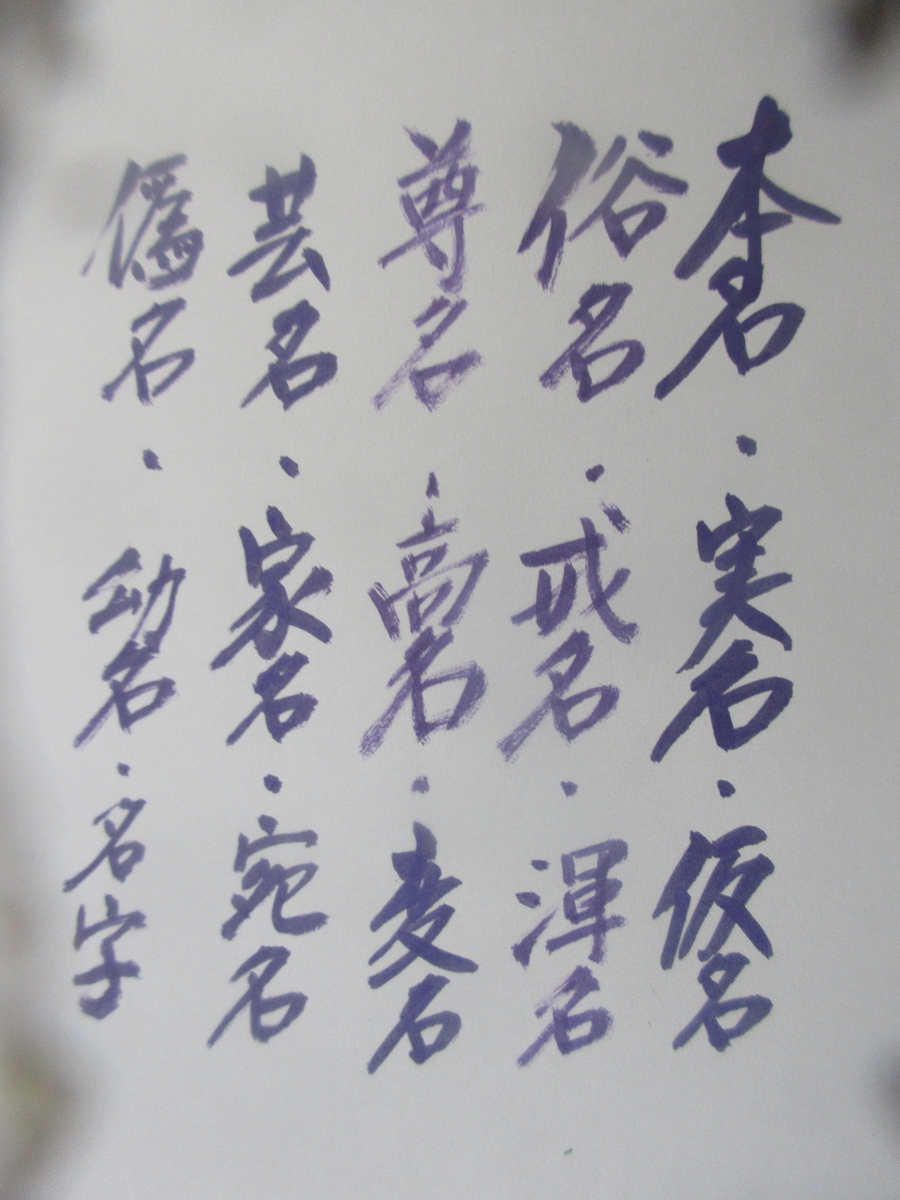 本名・実名・仮名
俗名・戒名・渾名
尊名・高名・変名
芸名・家名・宛名
偽名・幼名・名字